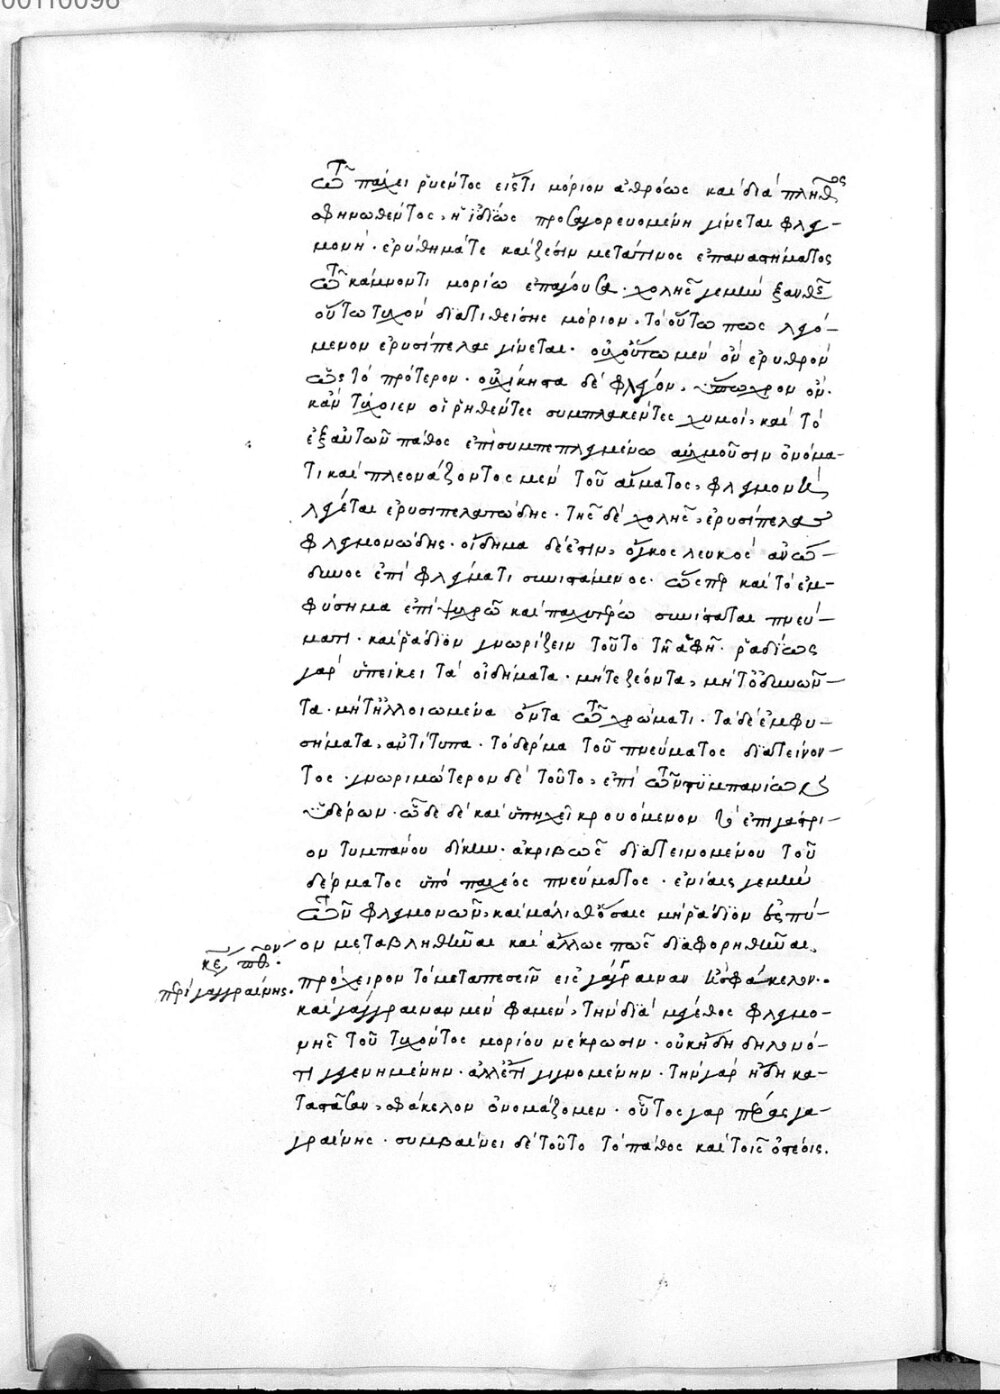 00110098
τῶ πάχει ῥυέντος εἴς τι μόριον ἀθρόως καὶ διὰ πλῆθος
σφηνωθέντος, ἡ ἰδίως προσαγορευομένη γίνεται φλεγ-
μονή. ἐρύθημά τε καὶ ζέσιν μετά τινος ἐπαναστήματος
τῶ κάμνοντι μορίω ἐπάγουσα. χολῆς γε μὴν ξανθῆς
οὕτω τυχὸν διατιθείσης μόριον, τὸ οὕτω πως λεγό-
μενον ἐρυσίπελας γίνεται. οὐχ οὕτω μὲν ὂν ἐρυθρὸν
ὡς τὸ πρότερον. οὐχ ἥκιστα δὲ φλέγον, ὕπωχρον ὄν.
κἂν τύχοιεν οἱ ῥηθέντες συμπλακέντες χυμοί, καὶ τὸ
ἐξ αὐτῶν πάθος ἐπισυμπεπλεγμένω αὐχμοῦσιν ὀνόμα-
τι καὶ πλεονάζοντος μὲν τοῦ αἵματος, φλεγμονὴ
λέγεται ἐρυσιπελατώδης. τῆς δὲ χολῆς, ἐρυσίπελας
φλεγμονώδης. οἴδημα δέ ἐστιν, ὄγκος λευκὸς ἀνώ-
δυνος ἐπὶ φλέγματι συνιστάμενος. ὥσπερ καὶ τὸ ἐμ-
φύσημα ἐπὶ ψυχρῶ καὶ παχυτέρω συνίσταται πνεύ-
ματι. καὶ ῥάδιον γνωρίζειν τοῦτο τῇ ἁφῇ. ῥαδίως
γὰρ ὑπείκει τὰ οἰδήματα. μήτε ζέοντα, μήτ' ὀδυνῶν-
τα. μήτ' ἠλλοιωμένα ὄντα τῶ χρώματι. τὰ δὲ ἐμφυ-
σήματα, ἀντίτυπα. τὸ δέρμα τοῦ πνεύματος διατείνον-
τος. γνωριμώτερον δὲ τοῦτο, ἐπὶ τῶν τυμπανίων
ὑδέρων. ὧδε δὲ καὶ ὑπηχεῖ κρουόμενον τὸ ἐπιγάστρι-
ον τυμπάνου δίκην. ἀκριβῶς διατεινομένου τοῦ
δέρματος ὑπὸ παχέος πνεύματος. ἐνίαις γε μὴν
τῶν φλεγμονῶν, καὶ μάλισθ' ὅσαις μὴ ῥάδιον εἰς πύ-
ον μεταβληθῆναι καὶ ἄλλως πως διαφορηθῆναι,
πρόχειρον τὸ μεταπεσεῖν εἰς γάγγραιναν ἢ σφάκελον.
περὶ γαγγραίνης.
καὶ γάγγραιναν μὲν φαμὲν, τὴν διὰ μέγεθος φλεγμο-
νῆς τοῦ τυχόντος μορίου νέκρωσιν. οὐκ ἤδη δηλονό-
τι γεγενημένην. ἀλλ' ἔτι γιγνομένην. τὴν γὰρ ἤδη κα-
ταστᾶσαν, σφάκελον ὀνομάζομεν. οὗτος γὰρ πέρας γα-
γραίνης. συμβαίνει δὲ τοῦτο τὸ πάθος καὶ τοῖς ὀστέοις.